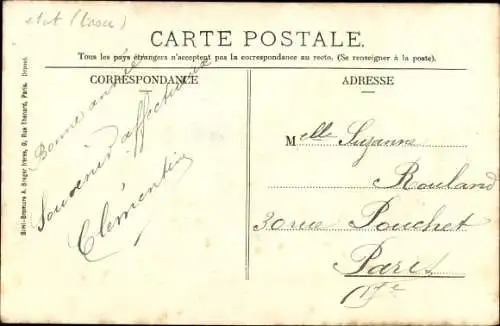 etat (Casa)
CARTE POSTALE.
Tous les pays étrangers n'acceptent pas la correspondance au recto. (Se renseigner à la poste).
CORRESPONDANCE
Bonne année
Souvenir affectueux
Clémentine
ADRESSE
Melle Suzanne
Rouland
30 rue Pouchet
Paris
17e
Simi-Bromure A. Breger frères, 9, Rue Thenard, Paris. Déposé.